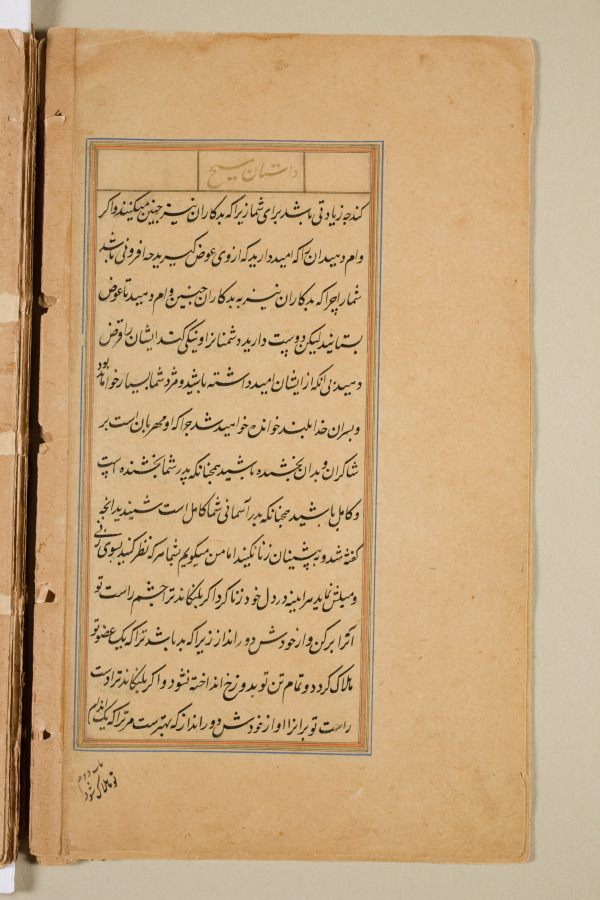 داستان مسیح
کند چه زیادتی باشد برای شما زیرا که بدکاران نیز چنین میکنند و اگر
وام دهید آنرا که امید دارید که از وی عوض گیرید چه افزونی باشد
شما را چرا که بدکاران نیز به بدکاران چنین وام دهید تا عوض
بستانید لیکن دوست دارید دشمنانرا و نیکی کنید ایشان را قرض
دهید بی آنکه از ایشان امید داشته باشید و مزد شما بسیار خواهد بود
و پسران خدا بلند خوانده خواهید شد چرا که او مهربان است بر
شاکران و بدان بخشنده باشید همچنانکه پدر شما بخشنده است
و کامل باشید همچنانکه پدر آسمانی شما کامل است شنیدید آنچه
گفته شد و به پیشینان زنا نکنید اما من میگویم شما هر که نظر کند بسوی زنی
و میلش نماید هر آینه در دل خود زنا کرد اگر بلنگاند ترا چشم راست تو
آنرا برکن و از خودش دور انداز زیرا که بد باشد ترا که یک عضو تو
هلاک گردد و تمام تن تو بدوزخ انداخته نشود و اگر بلنگاند ترا دست
راست تو ببر آنرا و از خودش دور انداز که بهترست مر ترا که یک اندام
باب دوم
تو هلاک شود